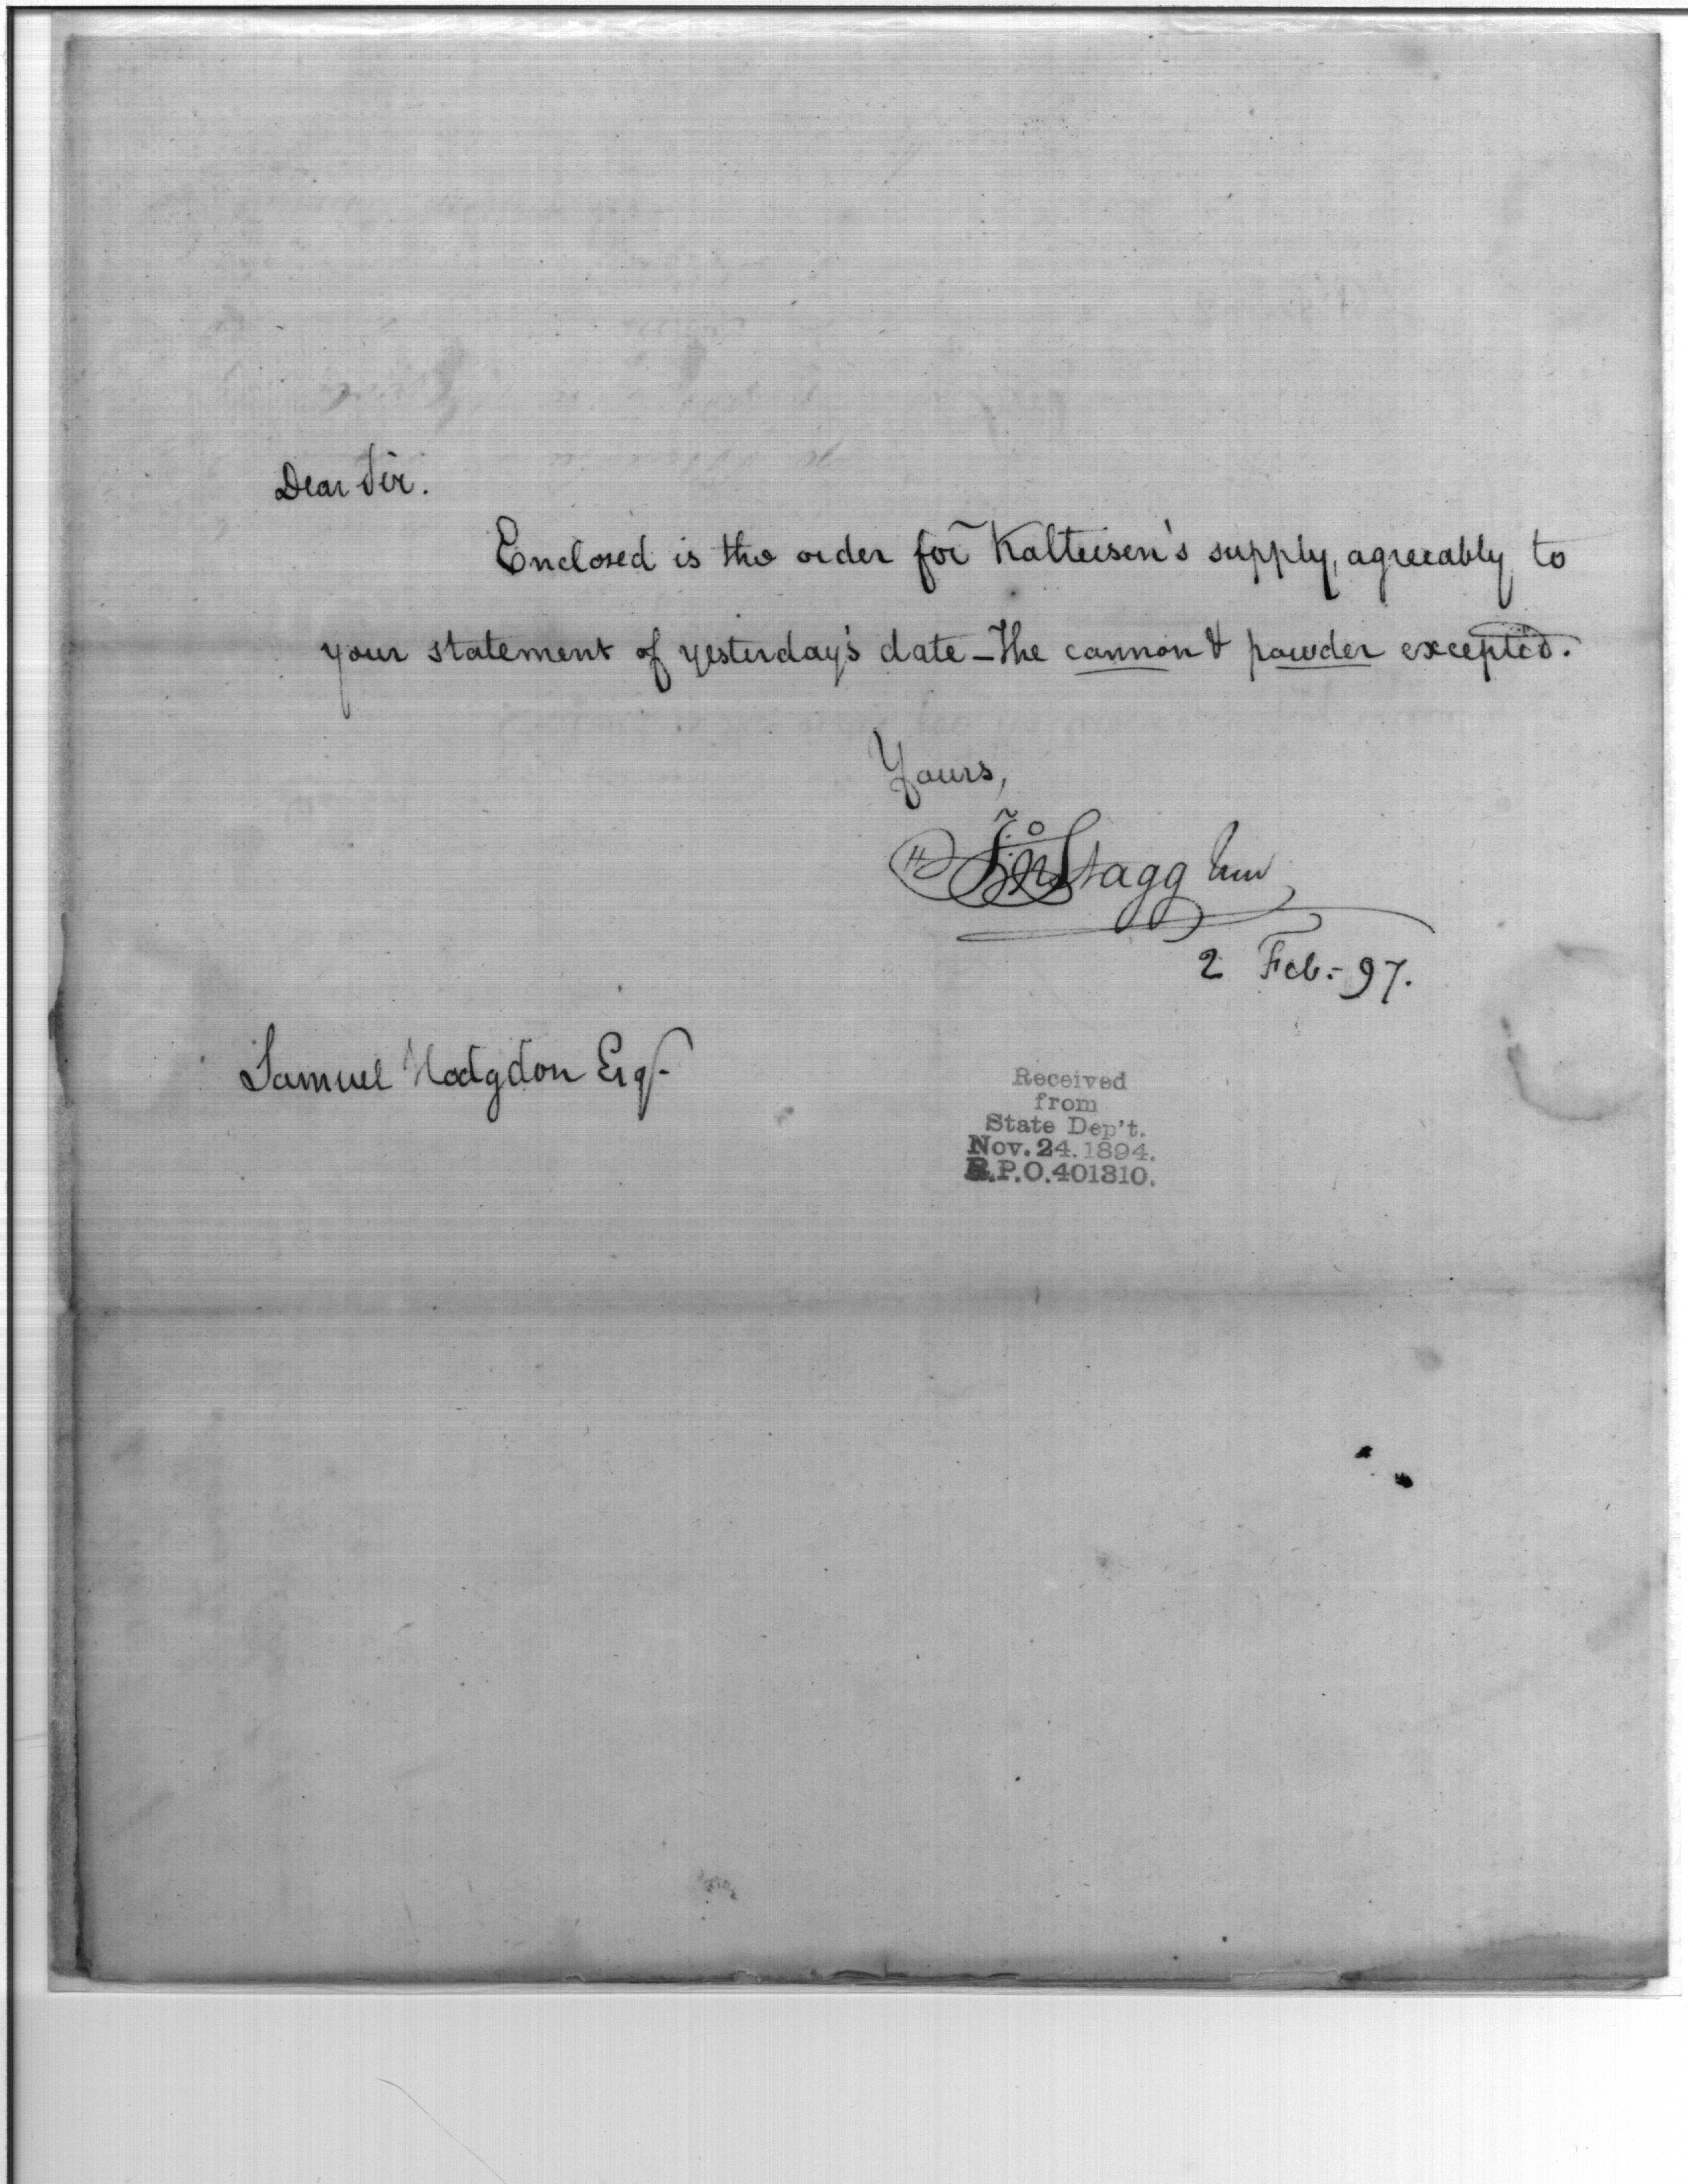 Dear Sir.
Enclosed is the order for Kalteisen's supply, agreeably to
your statement of yesterday's date - the cannon & powder excepted.
Yours,
Jno Stagg Junr
2 Feb:- 97.
Samuel Hodgdon Esqr.
Received
from
State Dep't.
Nov. 24. 1894.
R.P.O. 401310.